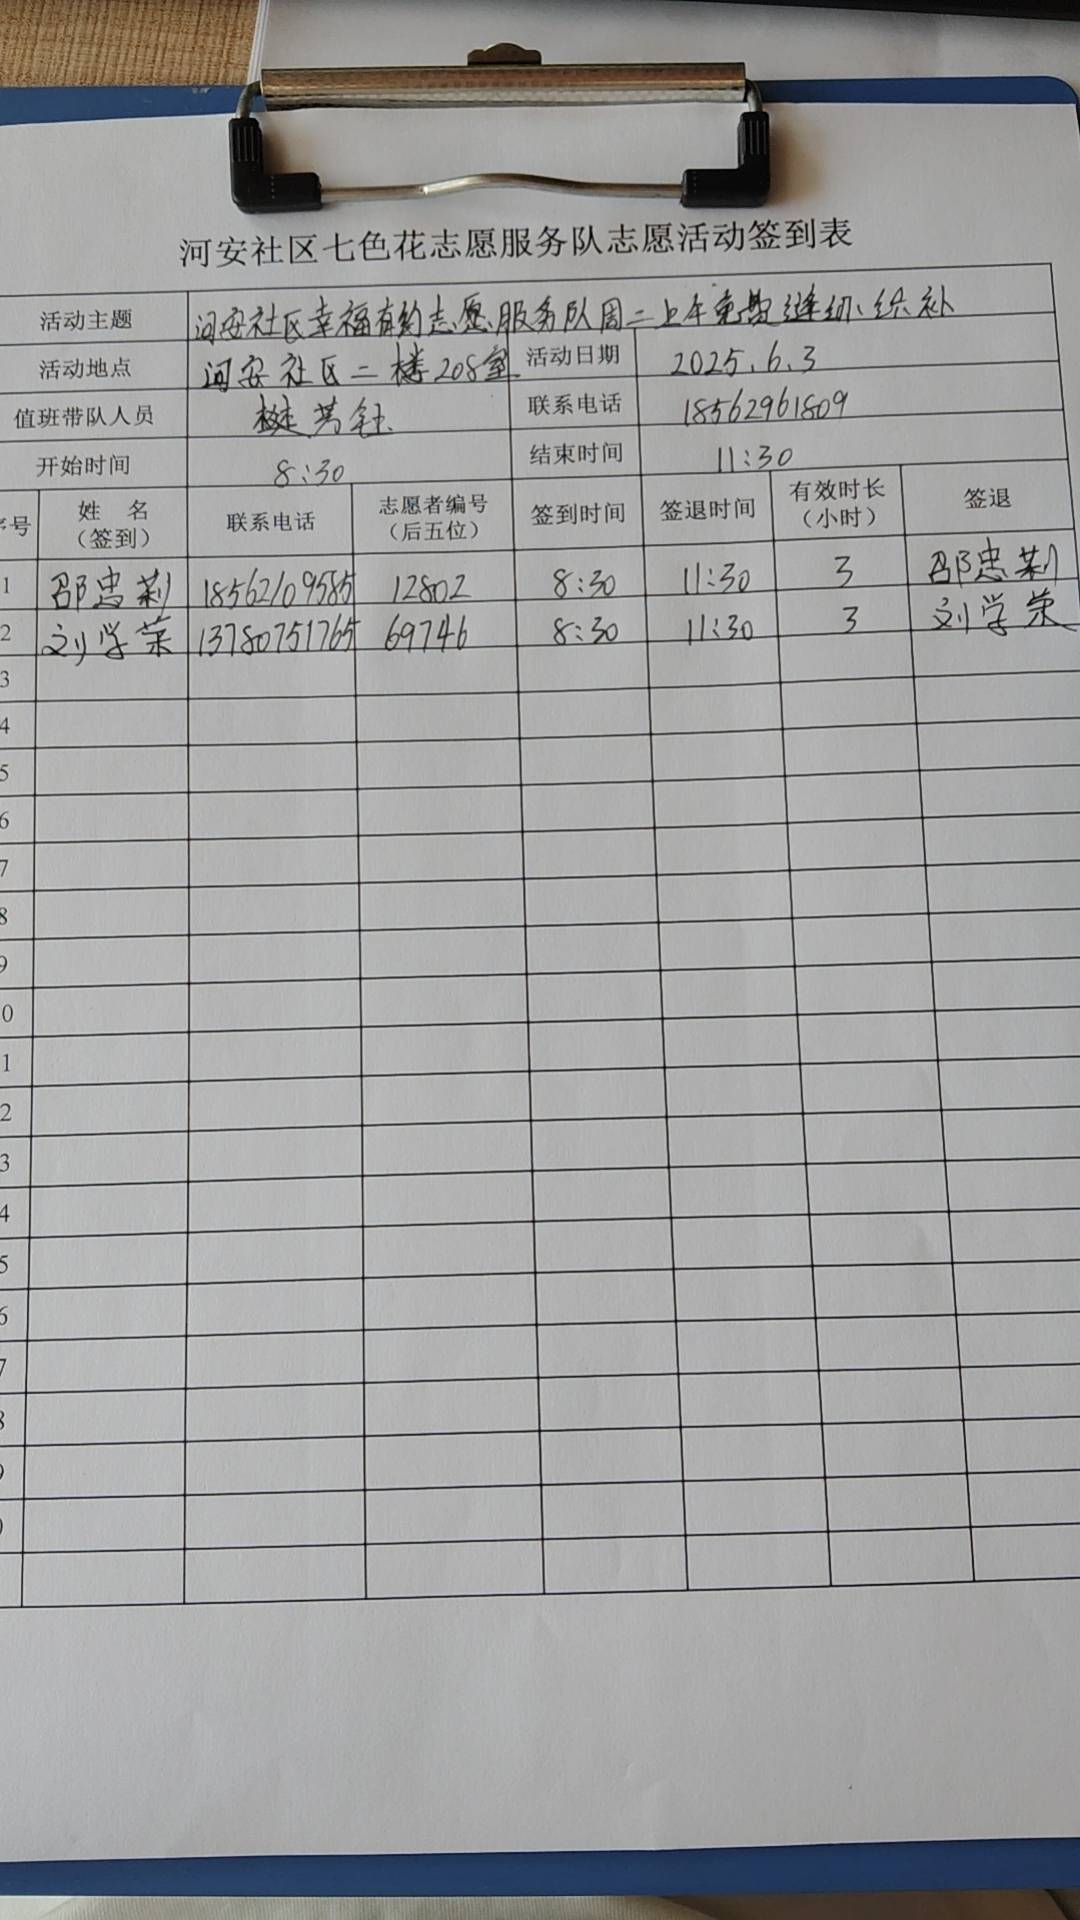 河安社区七色花志愿服务队志愿活动签到表
活动主题 河安社区幸福有约志愿服务队周二上午免费缝纫、织补
活动地点 河安社区二楼208室 活动日期 2025.6.3
值班带队人员 芳钰 联系电话 18562961809
开始时间 8:30 结束时间 11:30
序号 姓名（签到） 联系电话 志愿者编号（后五位） 签到时间 签退时间 有效时长（小时） 签退
1 邵忠莉 18562109585 12802 8:30 11:30 3 邵忠莉
2 刘学荣 13780751765 69746 8:30 11:30 3 刘学荣
3
4
5
6
7
8
9
0
1
2
3
4
5
6
7
8
9
0